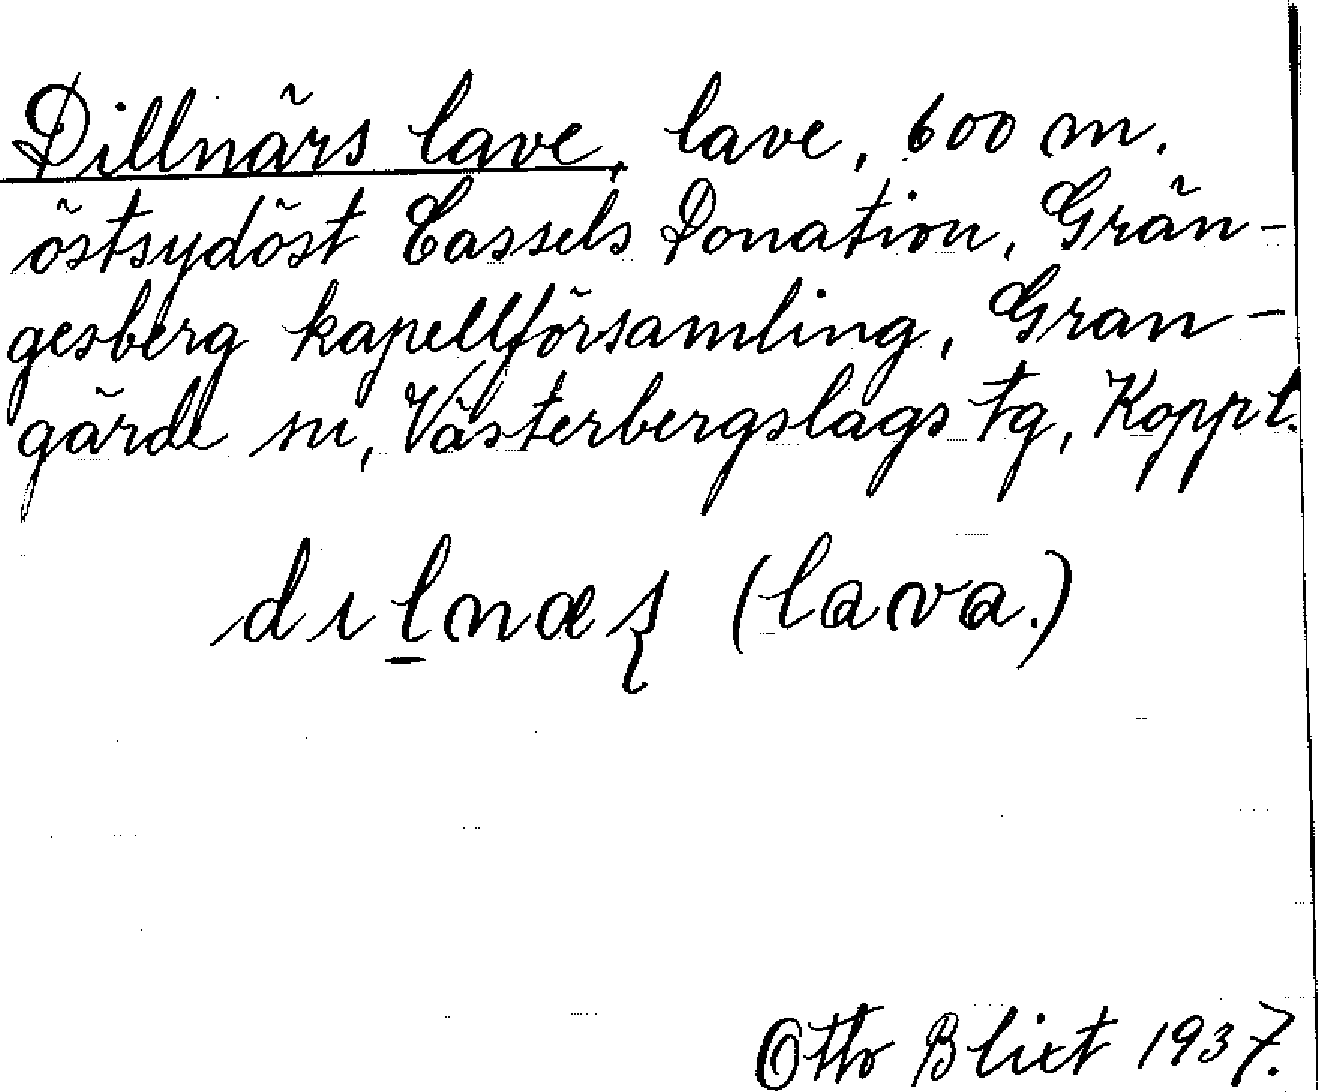 Dillnärs lave, lave, 600 m.
östsydöst Cassels Donation, Grän-
gesberg kapellförsamling, Gran-
gärde sn, Västerbergslags tg, Koppl.
dılnæʂ (lava.)
Otto Blixt 1937.